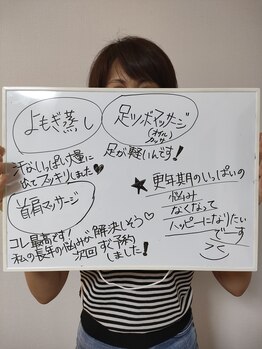 よもぎ蒸し
汗がいっぱい大量に
出てスッキリしました♥
足ツボマッサージ
(オイルマッサ)
足が軽いんです!
首肩マッサージ
コレ最高です!
私の長年の悩みが解決しそう♡
次回すぐ予約
しました!
★更年期のいっぱいの
悩み
なくなって
ハッピーになりたい
でーす